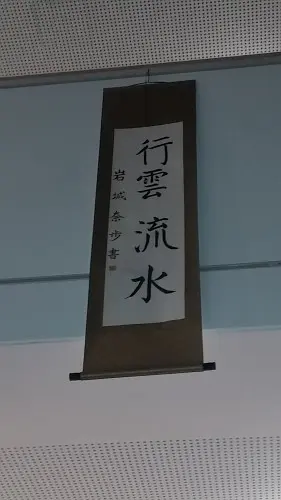 行雲流水
岩城奈歩書